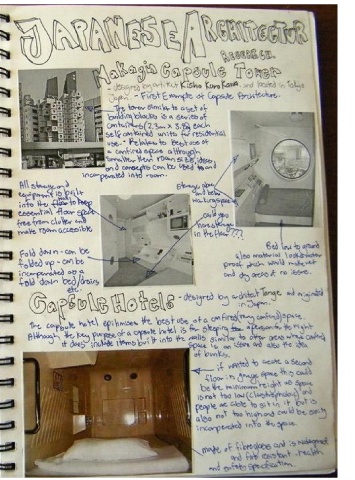 JAPANESE ARCHITECTUR
RESEARCH.
Nakagin Capsule Tower
- designed by architect Kisho Kurokawa and located in Tokyo
Japan - First Example of Capsule Architecture.
The tower similar to a set of
building blocks is a series of
containers (2.3m x 3.8m) each
self contained units for residential
use - Relates to best use of
a confined space although
smaller than room size ideas
and concepts can be used to and
incorporated into room.
All storage and
equipment is built
into the floor to keep
essential floor space
free from clutter and
make room accessible
Storage above
and below
working space
could you
have storage
in the floor???
Fold down - can be
folded up - can be
incorporated as a
fold down bed/dining
etc.
Bed low to ground
also material looks
proof which would make wet
and dry areas no issue.
Capsule Hotels - designed by architect Tange and originated
in Japan.
The capsule hotel epitomises the best use of a confined space.
Although the key purpose of a capsule hotel is for sleeping
it does include items built into the walls similar to other areas where confined
space is an issue and also the idea
of bunks.
if wanted to create a second
floor in garage space this could
be the minimum height as space
is not too low (claustrophobic) and
people are able to sit in it but is
also not too high and could be easily
incorporated into the space.
made of fibreglass and is waterproof
and fire resistant - health
and safety specification.